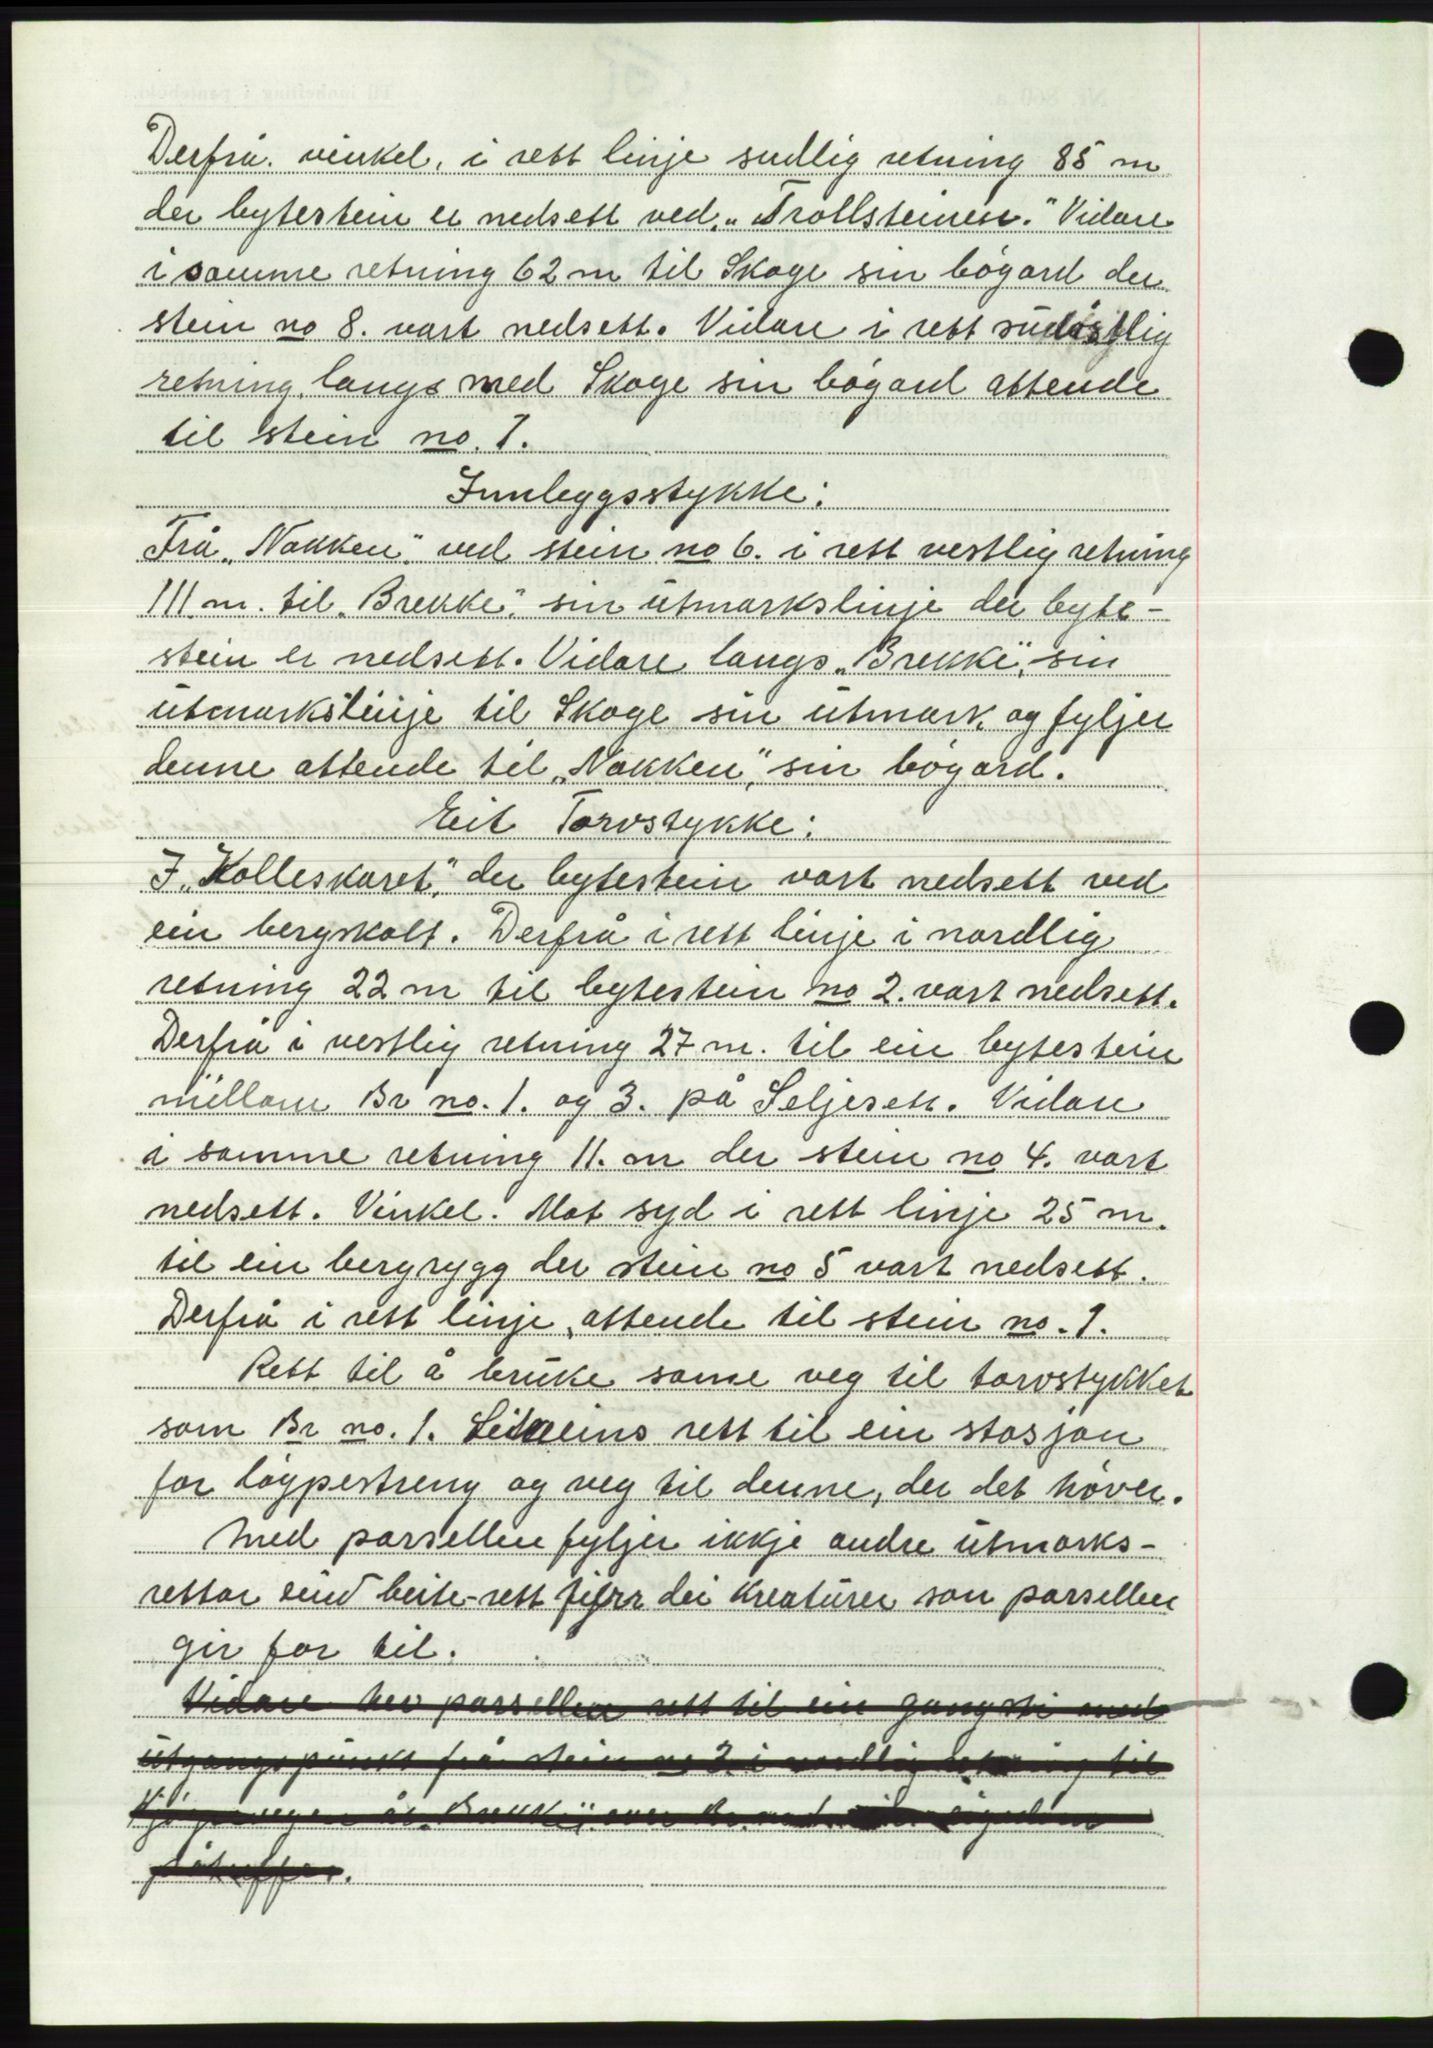 Derfrå. vinkel, i rett linje sudlig retning 85 m
der bytestein er nedsett ved „Trollsteinen." Vidare
i somme retning 62 m til Skage sin bógard der
stein no 8. vart nedsett. Vidare i rett südóstlig
retning, langs med Skage sin bógard attende
til stein no. 1.
Innleggsstykke:
Frå „Nakken" ved stein no 6. i rett vestlig retning
111 m. til „Brekke" sin ütmarkslinje der byte-
stein er nedsett. Vidare langs „Brekke" sin
ütmarkslinje til Skage sin ütmark og fyljer
denne attende til „Nakken" sin bógard.
Eit Torvstykke:
I „Kolleskaret" der bytestein vart nedsett ved
ein bergskolt. Derfrå i rett linje i nordlig
retning 22 m til bytestein no 2. vart nedsett.
Derfrå i vestlig retning 27 m. til ein bytestein
millom Br no. 1. og 3. på Seljesett. Vidare
i somme retning 11. m der stein no 4. vart
nedsett. Vinkel. Mot syd i rett linje 25 m.
til ein bergrygg der stein no 5 vart nedsett.
Derfrå i rett linje, attende til stein no. 1.
Rett til å brüke same veg til torvstykket
som Br no. 1. rett til ein stasjon
for lóypestreng og veg til denne, der det hóver.
Med parsellen fyljer ikkje andre ütmarks-
rettar enn beite-rett fyrr dei kreatürer som parsellen
gir for til.
Vidare hev parsellen rett til ein gangsti med
ütgangspünkt frå stein no 2 i nordlig retning til
„Brekke" over Br.
påtreffer.